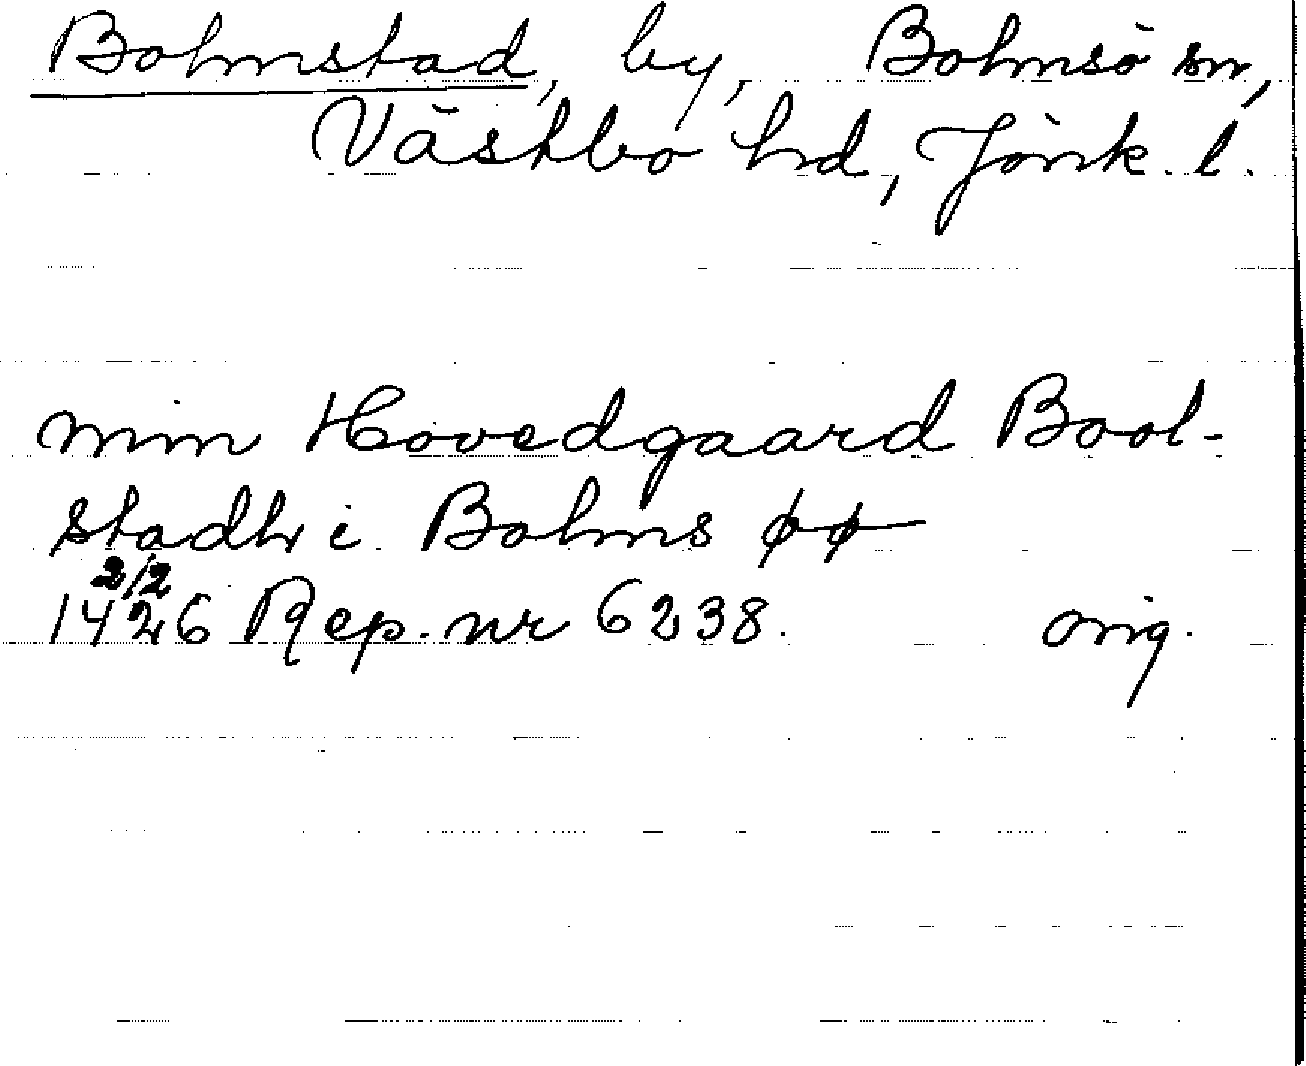 Bolmstad, by, Bolmsö sn,
Västbo hd, Jönk. l.
min Hovedgaard Bool-
stadh i Bolms øø
2/2
1426 Rep. nr 6238. orig.